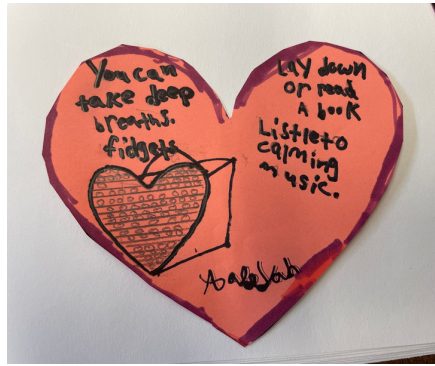 You can
take deep
breaths.
fidgets
Lay down
or read
A book
Listleto
calming
music.